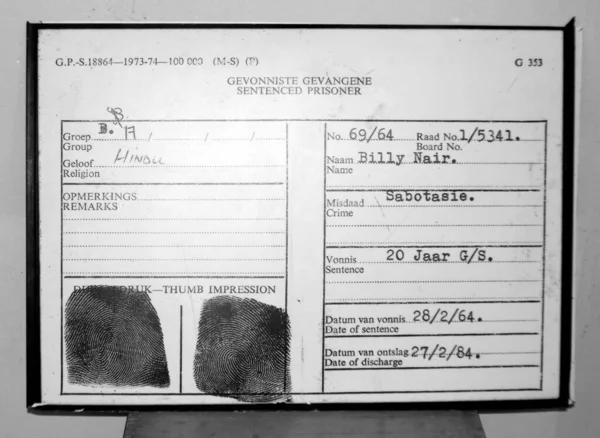 G.P.-S.18864—1973-74—100 000 (M-S) (P) G 353
GEVONNISTE GEVANGENE
SENTENCED PRISONER
Groep B. A
Group
Geloof HINDU
Religion
OPMERKINGS
REMARKS
DRUK—THUMB IMPRESSION
No. 69/64 Raad No. 1/5341.
Board No.
Naam Billy Nair.
Name
Misdaad Sabotasie.
Crime
Vonnis 20 Jaar G/S.
Sentence
Datum van vonnis 28/2/64.
Date of sentence
Datum van ontslag 27/2/84.
Date of discharge